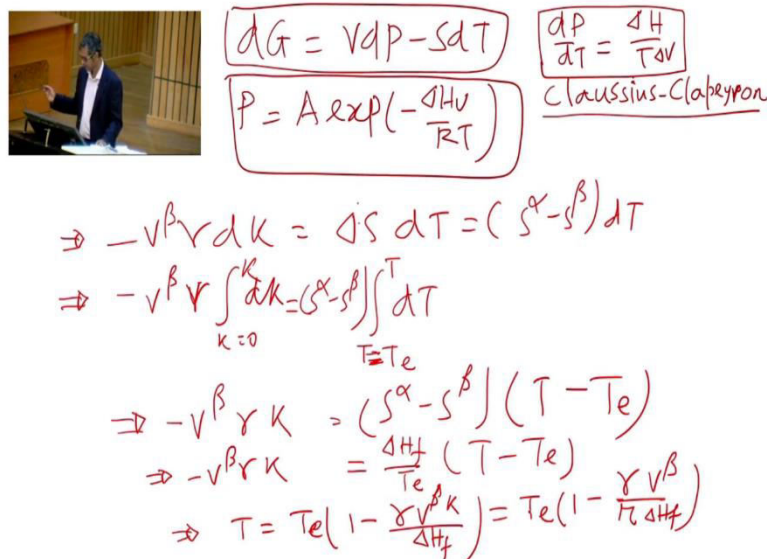 dG = Vdp - SdT
dP/dT = ΔH/TΔV
Claussius-Clapeyron
P = A exp(-ΔHv/RT)
⇒ -v^β γ dK = ΔS dT = (S^α - S^β) dT
⇒ -v^β γ ∫_{K=0}^{K} dK = (S^α - S^β) ∫_{T=Te}^{T} dT
⇒ -v^β γ K = (S^α - S^β) (T - Te)
⇒ -v^β γ K = ΔHf/Te (T - Te)
⇒ T = Te(1 - γv^βK/ΔHf) = Te(1 - γv^β/rΔHf)